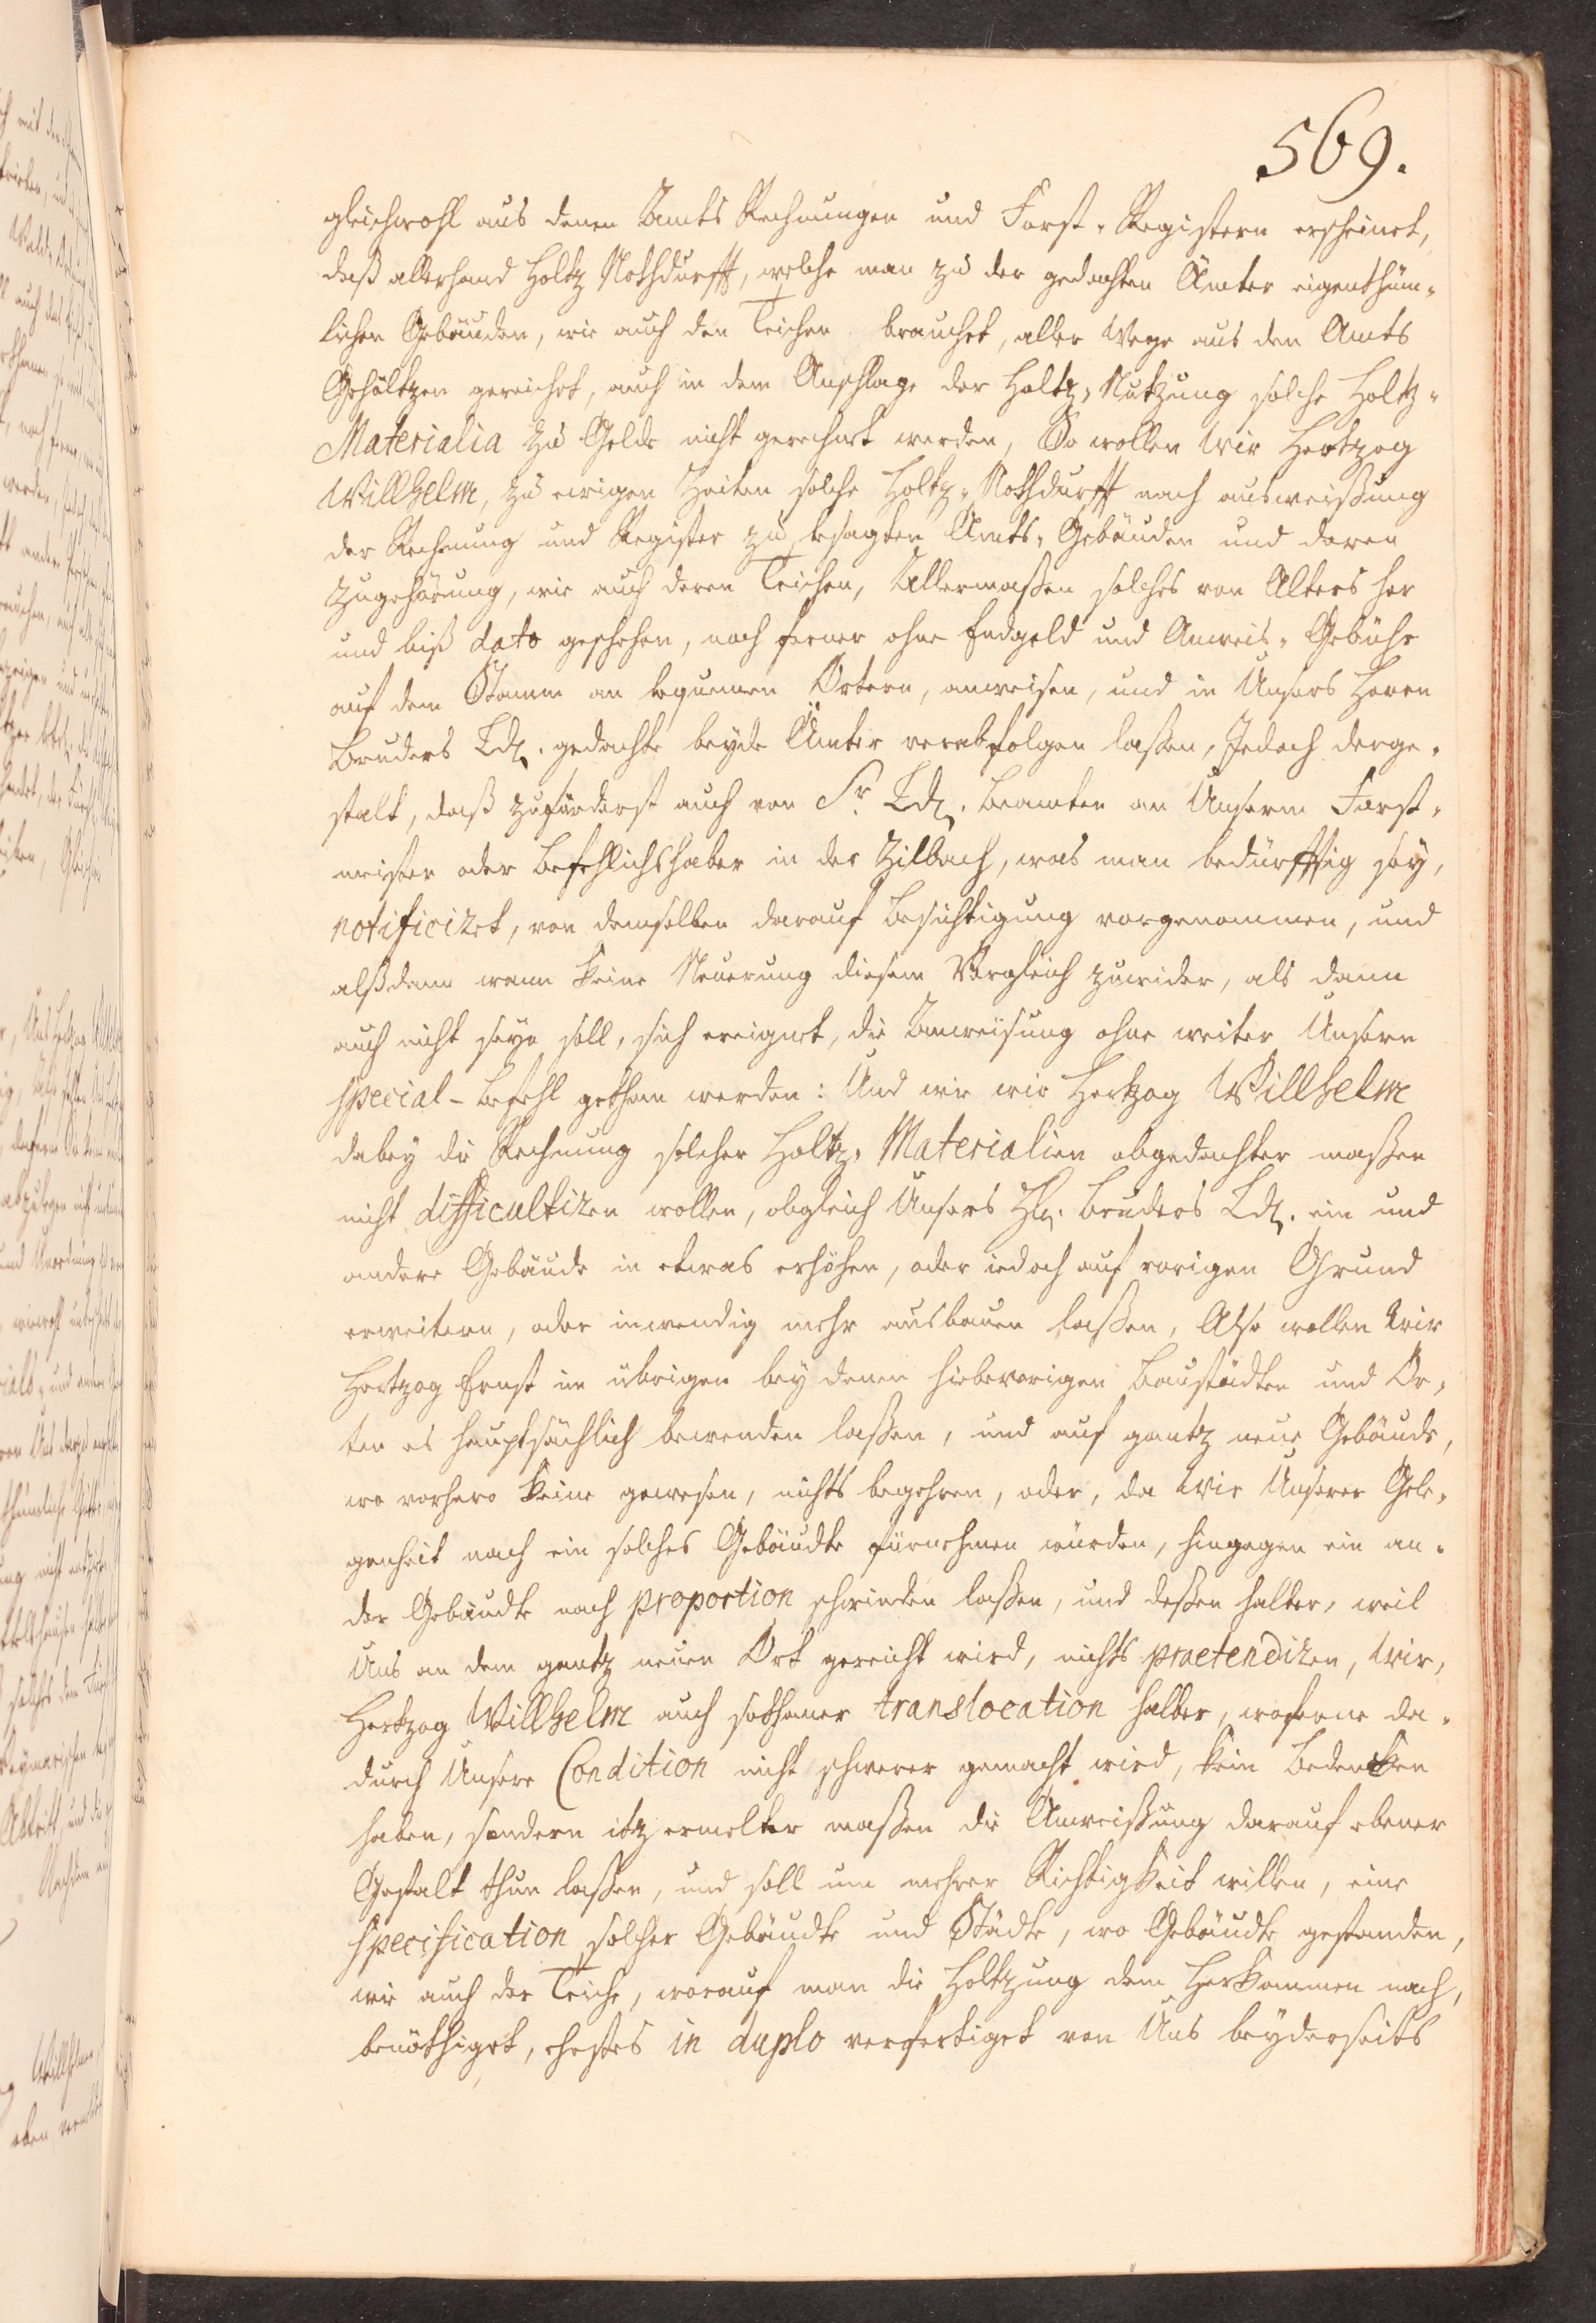 569.
gleichwohl aus denen Amts Rechnungen und Forst-Registern erscheinet,
daß allerhand Holtz Nothdurfft, welche man zu der gedachten Ämter eigenthüm-
lichen Gebäuden, wie auch den Teichen brauchet, aller Wege aus den Amts
Gehöltzen gereichet, auch in dem Anschlage der Holtz-Nutzung solche Holtz-
Materialia zu Gelde nicht gerechnet werden, So wollen Wir Hertzog
Willhelm, zu ewigen Zeiten solche Holtz-Nothdurfft nach ausweißung
der Rechnung und Register zu besagten Amts-Gebäuden und deren
Zugehörung, wie auch deren Teichen, Allermaßen solches von Alters her
und biß dato geschehen, noch ferner ohne Endgeld und Anweis-Gebühr
auf dem Stamm an bequemen Örtern, anweisen, und in Unsers Herrn
Bruders Ldn. gedachte beyde Ämter verabfolgen laßen, Jedoch derge-
stalt, daß zuförderst auch von Sr. Ldn. Beamten an Unserm Forst-
meister oder Befehlichshaber in der Zilbach, was man bedürfftig sey,
notificiret, von demselben darauf Besichtigung vorgenommen, und
alßdann wann keine Neuerung diesem Vergleich zuwider, als dann
auch nicht seyn soll, sich ereignet, die Anweisung ohne weiter Unsern
special-Befehl gethan werden: Und wie wir Hertzog Willhelm
dabey die Rechnung solcher Holtz-Materialien obgedachter maßen
nicht difficultiren wollen, obgleich Unsers Hn. Bruders Ldn. ein und
andere Gebäude in etwas erhöhen, oder iedoch auf vorigen Grund
erweitern, oder inwendig mehr ausbauen laßen, Also wollen Wir
Hertzog Ernst im übrigen bey denen hiebevorigen Baustädten und Or-
ten es hauptsächlich bewenden laßen, und auf gantz neue Gebäude,
wo vorhero keine gewesen, nichts begehren, oder, da Wir Unserer Gele-
genheit nach ein solches Gebäudte fürnehmen würden, hingegen ein an-
der Gebäudte nach proportion schwinden laßen, und deßen halber, weil
Uns an dem gantz neuen Ort gereicht wird, nichts praetendiren, Wir,
Hertzog Willhelm auch sothaner translocation halber, woferne da-
durch Unsere Condition nicht schwerer gemacht wird, kein Bedencken
haben, sondern itz ermelter maßen die Anweißung darauf ebener
Gestalt thun laßen, und soll um mehrer Richtigkeit willen, eine
specification solcher Gebäudte und Städte, wo Gebäudte gestanden,
wie auch der Teiche, worauf man die Holtzung dem Herkommen nach,
benöthiget, ehestes in duplo verfertiget von Uns beyderseits